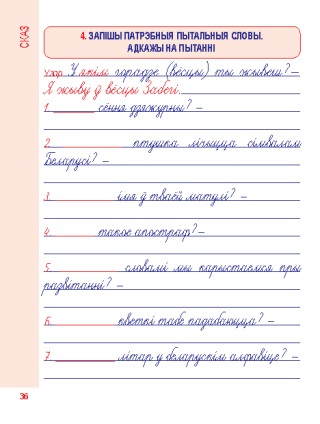 СКАЗ
4. ЗАПІШЫ ПАТРЭБНЫЯ ПЫТАЛЬНЫЯ СЛОВЫ.
АДКАЖЫ НА ПЫТАННІ
Узор У якім горадзе (вёсцы) ты жывеш? –
Я жыву ў вёсцы Забегі.
1. сёння дзяжурны? –
2. птушка лічыцца сімвалам
Беларусі? –
3. імя ў тваёй матулі? –
4. такое апостраф? –
5. словамі мы карыстаемся пры
развітанні? –
6. кветкі табе падабаюцца? –
7. літар у беларускім алфавіце? –
36